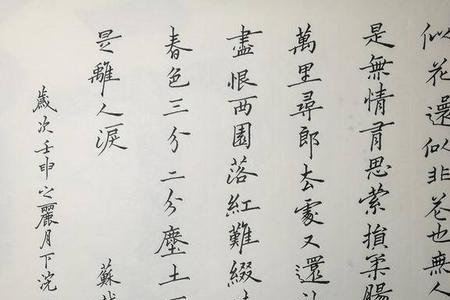 似花還似非花也無人
是無情有思縈損柔腸
萬里尋郎去處又還
盡恨西園落紅難綴
春色三分二分塵土
是離人淚
歲次壬申之麗月下浣
蘇